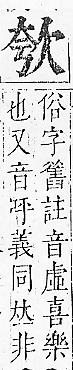 俗字舊註音虛喜樂
也又音呼義同𠀤非